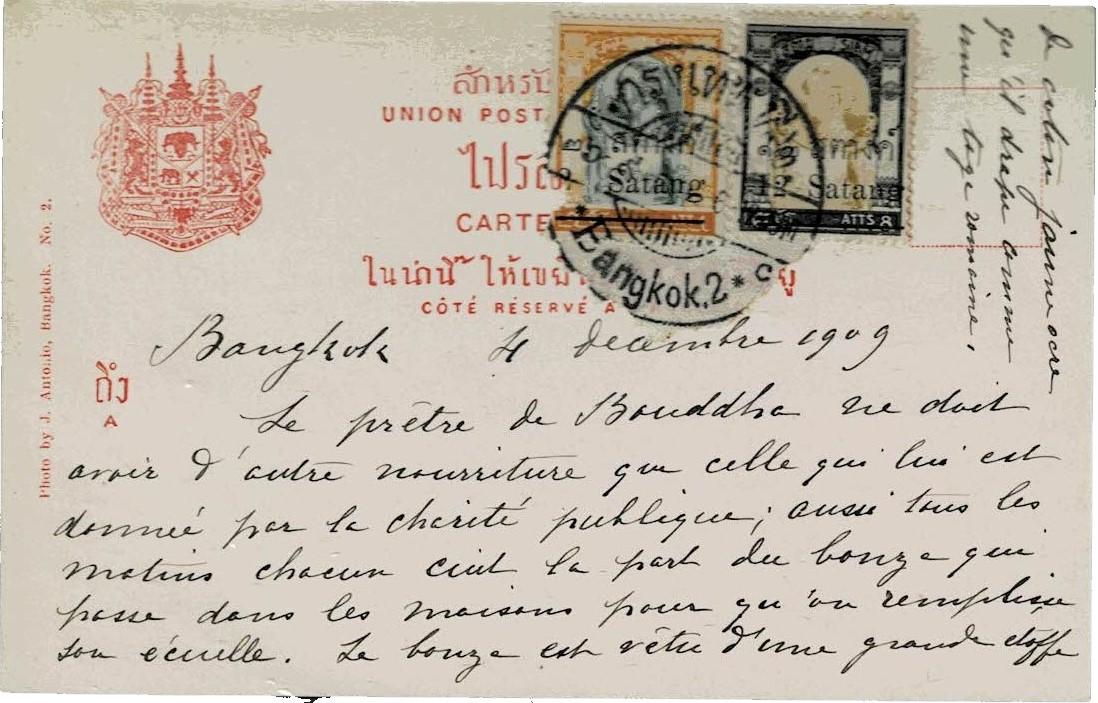 สำหรับ
UNION POST
ไปรษ
CARTE
ในน่านี้ ให้เขีย
CÔTÉ RÉSERVÉ A
Satang
12 Satang
ATTS 8
Bangkok.2
Photo by J. Antonio, Bangkok. No. 2.
ถึง
A
Bangkok 4 decembre 1909
Le prêtre de Bouddha ne doit
avoir d'autre nourriture que celle qui lui est
donnée par la charité publique; aussi tous les
matins chacun cuit la part du bonze qui
passe dans les maisons pour qu'on remplisse
son écuelle. Le bonze est vêtu d'une grande étoffe
de coton jaune ocre
qu'il drape comme
une toge romaine.